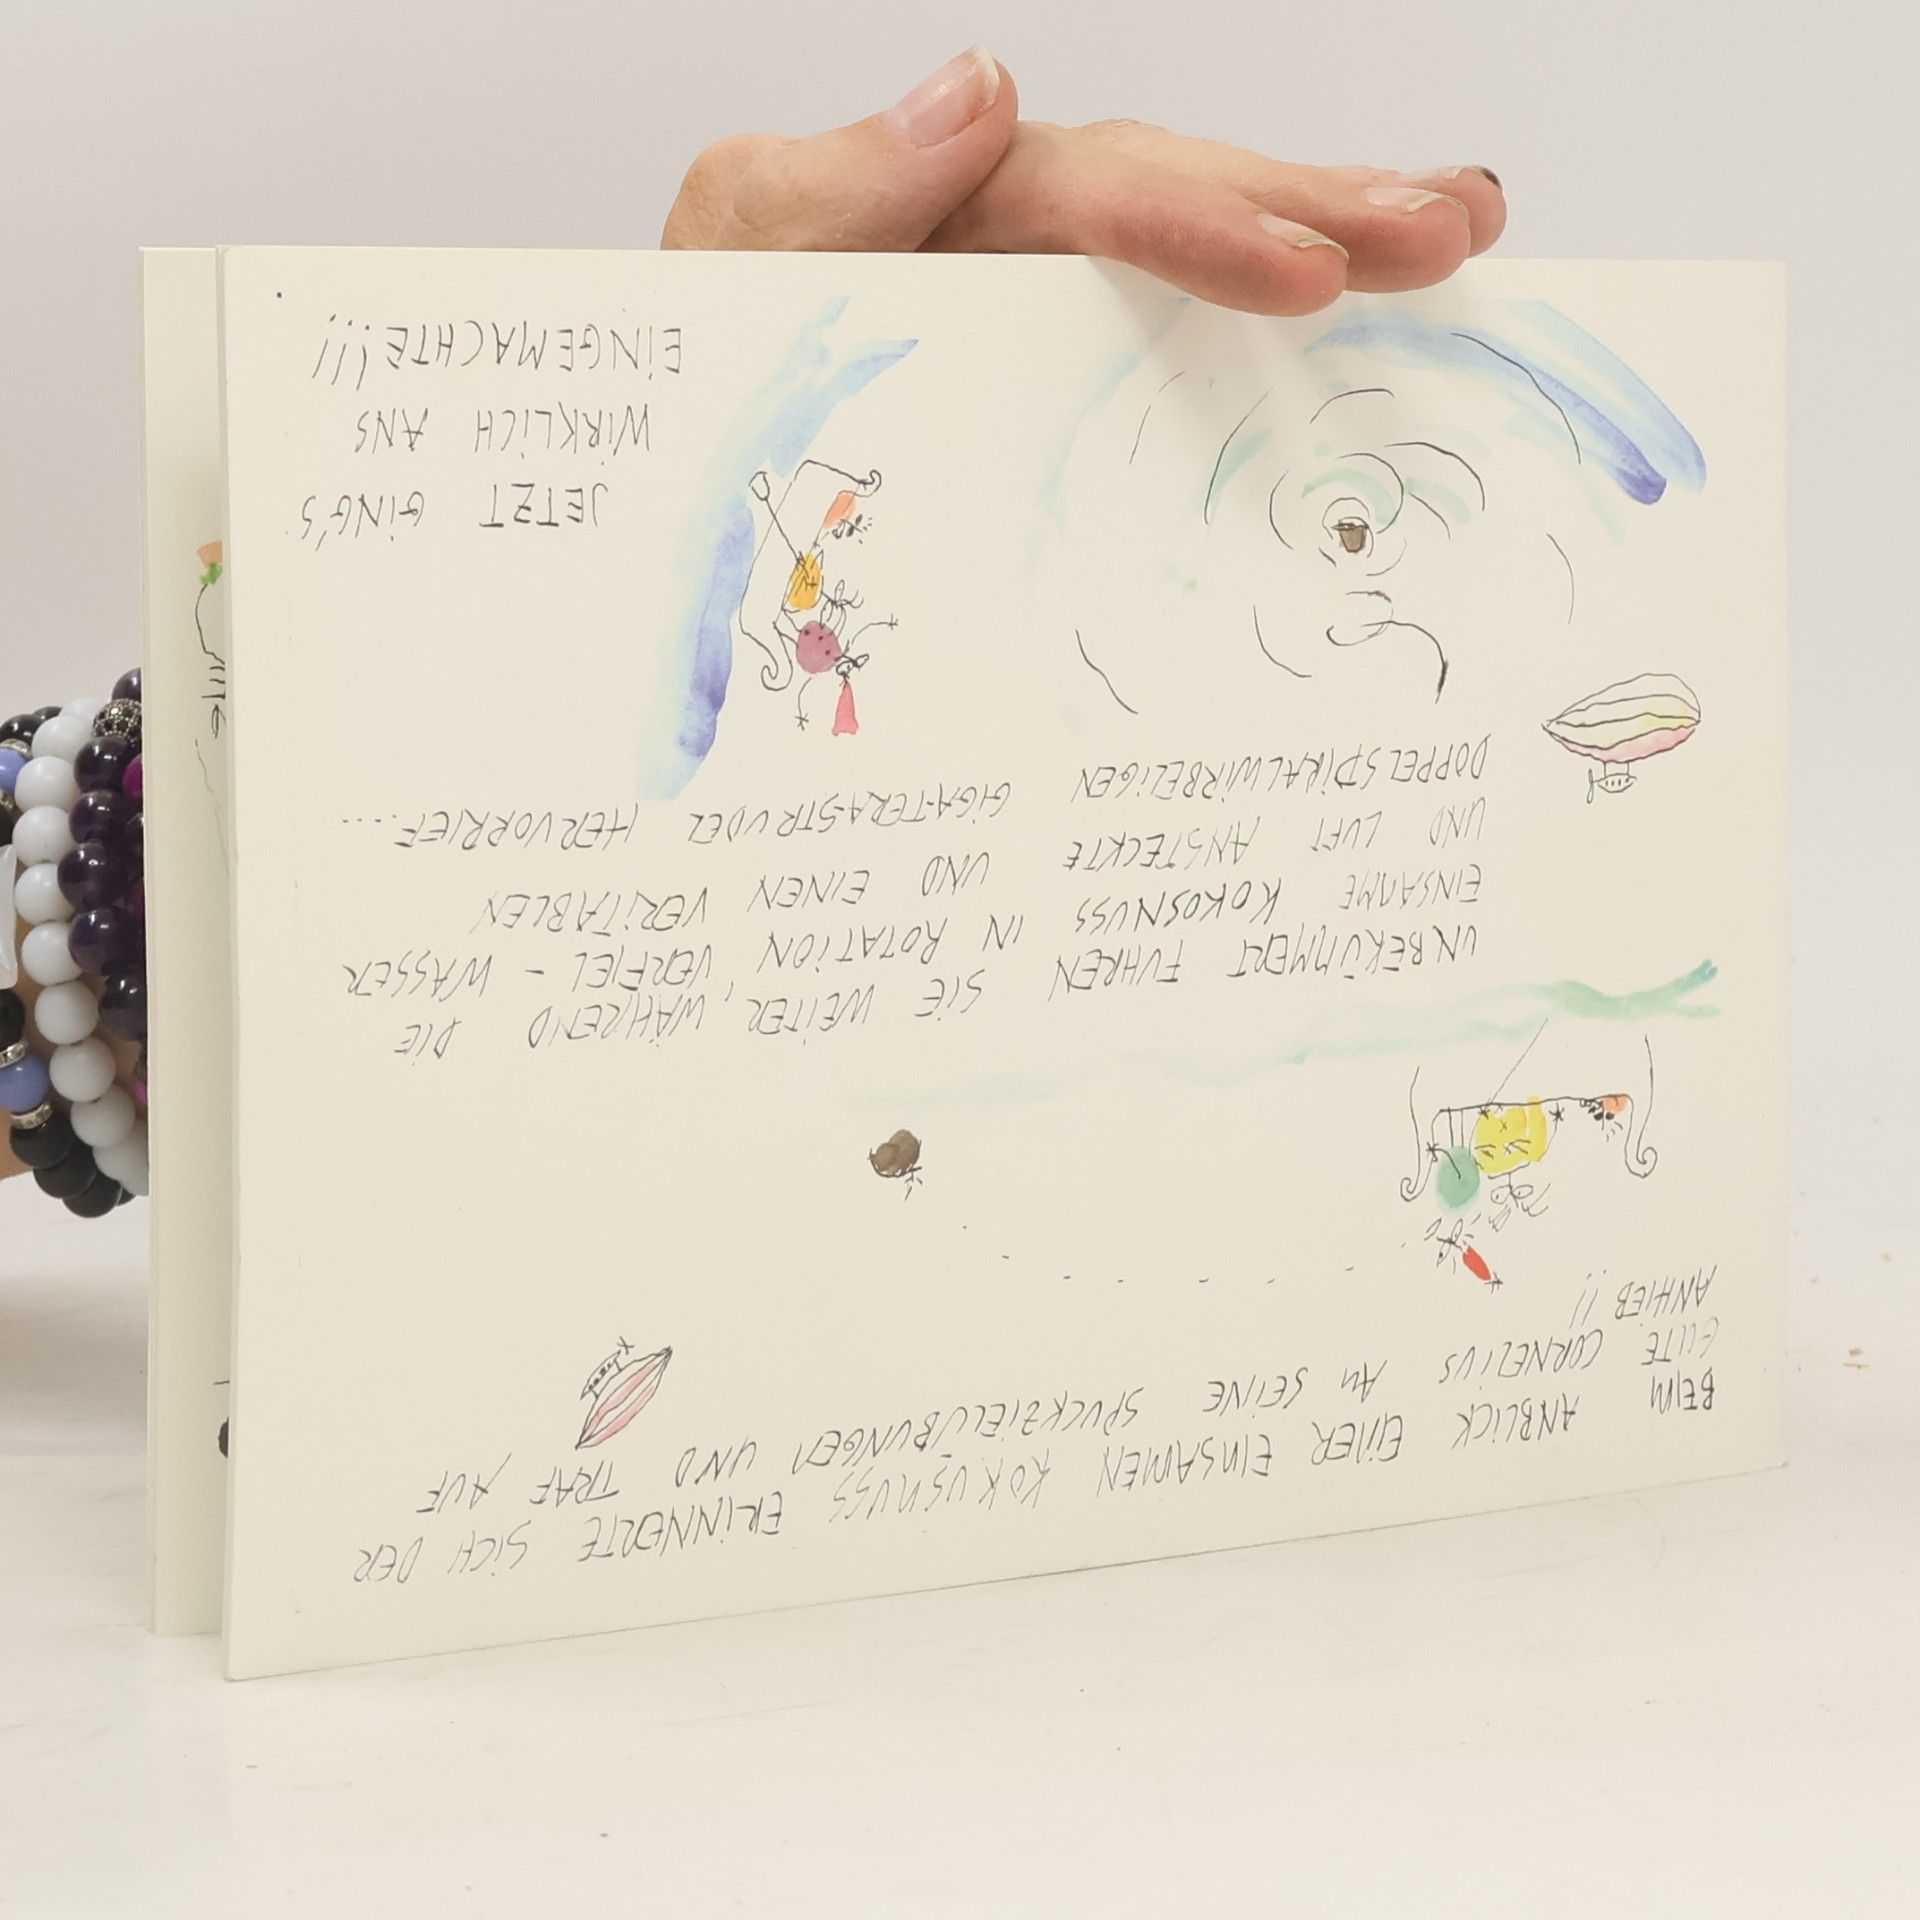 BEIM ANBLICK EINER EINSAMEN KOKUSNUSS ERINNERTE SICH DER
GUTE CORNELIUS AN SEINE SPUCKZIELÜBUNGEN UND TRAF AUF
ANHIEB!!
UNBEKÜMMERT FUHREN SIE WEITER, WÄHREND DIE
EINSAME KOKOSNUSS IN ROTATION VERFIEL - WASSER
UND LUFT ANSTECKTE UND EINEN VERITABLEN
DOPPELSPIRALWIRBELIGEN GIGA-TERA-STRUDEL HERVORRIEF....
JETZT GING'S
WIRKLICH ANS
EINGEMACHTE!!!